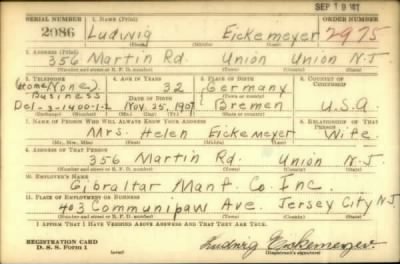 SEP 19 '41
SERIAL NUMBER 1. NAME (Print) ORDER NUMBER
2086 Ludwig Eickemeyer 2975
(First) (Middle) (Last)
2. ADDRESS (Print)
356 Martin Rd. Union Union N.J.
(Number and street or R. F. D. number) (Town) (County) (State)
3. TELEPHONE 4. AGE IN YEARS 5. PLACE OF BIRTH 6. COUNTRY OF CITIZENSHIP
Home (None) 32 Germany
Business DATE OF BIRTH (Town or county)
Del-3-1400-1-2 Nov. 25, 1907 Bremen U.S.A.
(Mo.) (Day) (Yr.) (State or country)
7. NAME OF PERSON WHO WILL ALWAYS KNOW YOUR ADDRESS 8. RELATIONSHIP OF THAT PERSON
Mrs. Helen Eickemeyer Wife
(Mr., Mrs., Miss) (First) (Middle) (Last)
9. ADDRESS OF THAT PERSON
356 Martin Rd. Union N.J.
(Number and street or R. F. D. number) (Town) (County) (State)
10. EMPLOYER'S NAME
Gibraltar Manf. Co. Inc.
11. PLACE OF EMPLOYMENT OR BUSINESS
403 Communipaw Ave. Jersey City N.J.
(Number and street or R. F. D. number) (Town) (County) (State)
I AFFIRM THAT I HAVE VERIFIED ABOVE ANSWERS AND THAT THEY ARE TRUE.
REGISTRATION CARD
D. S. S. Form 1 (over) Ludwig Eickemeyer
(Registrant's signature)